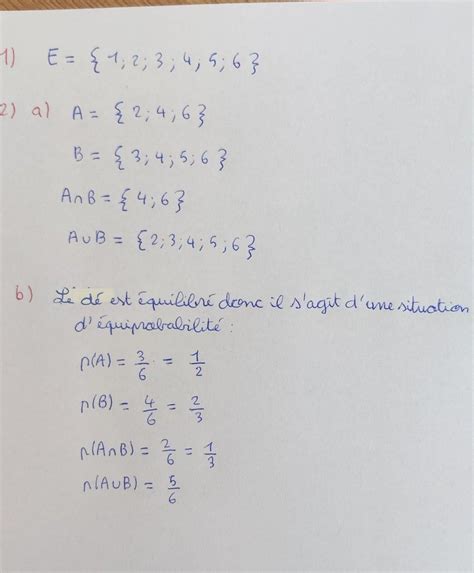 1) E = {1; 2; 3; 4; 5; 6}
2) a) A = {2; 4; 6}
B = {3; 4; 5; 6}
A∩B = {4; 6}
A∪B = {2; 3; 4; 5; 6}
b) Le dé est équilibré donc il s'agit d'une situation
d'équiprobabilité :
p(A) = 3/6 = 1/2
p(B) = 4/6 = 2/3
p(A∩B) = 2/6 = 1/3
p(A∪B) = 5/6